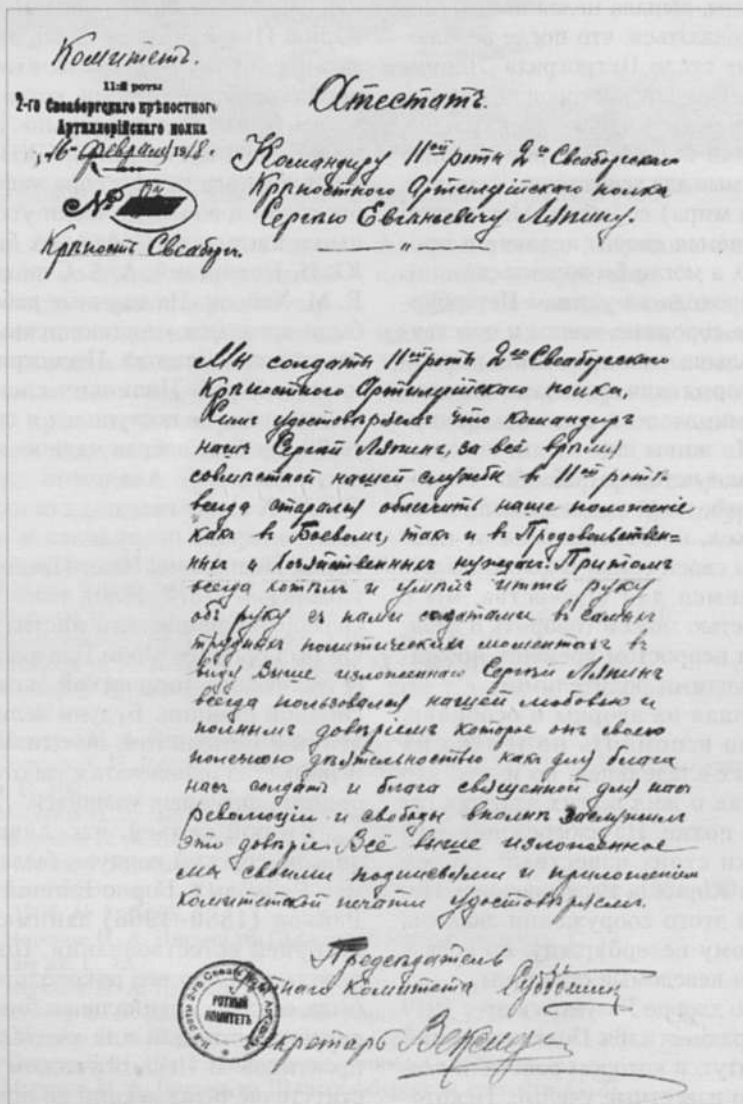 Комитетъ.
11-й роты
2-го Свеаборгскаго крѣпостного
Артиллерійскаго полка
„16“ февраля 1918 г.
№
Крѣпость Свеаборг.
Атестатъ.
Командиру 11ой роты 2го Свеаборгскаго
Крѣпостного Артилерійскаго полка
Сергѣю Евгеньевичу Ляпину.
Мы солдаты 11ой роты 2го Свеаборгскаго
Крѣпостного Артилерійскаго полка,
Симъ удостовѣряемъ что командиръ
нашъ Сергѣй Ляпинъ, за всё время
совмѣстной нашей службы в 11ой ротѣ
всегда старался облегчить наше положеніе
какъ в Боевомъ, такъ и в Продовольствен=
ныхъ и Хозяйственныхъ нуждахъ. Притомъ
всегда хотѣлъ и умѣлъ итти руку
объ руку съ нами солдатами в самые
трудные политическіе моменты в
виду Выше изложеннаго Сергѣй Ляпинъ
всегда пользовался нашей любовью и
полнымъ довѣріемъ которое онъ своею
полезною дѣятельностью какъ для блага
насъ солдатъ и блага священной для насъ
Революціи и свободы вполнѣ заслужилъ
это довѣріе. Всё выше изложенное
мы своими подписями и приложеніемъ
комитетской печати удостовѣряемъ.
Председатель
Ротнаго Комитета
РОТНЫЙ
КОМИТЕТЪ
Секретарь